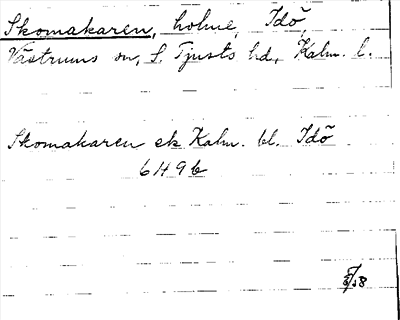 Skomakaren, holme, Idö,
Västrums sn, S. Tjusts hd, Kalm. l.
Skomakaren ek Kalm. bl. Idö
6H9b